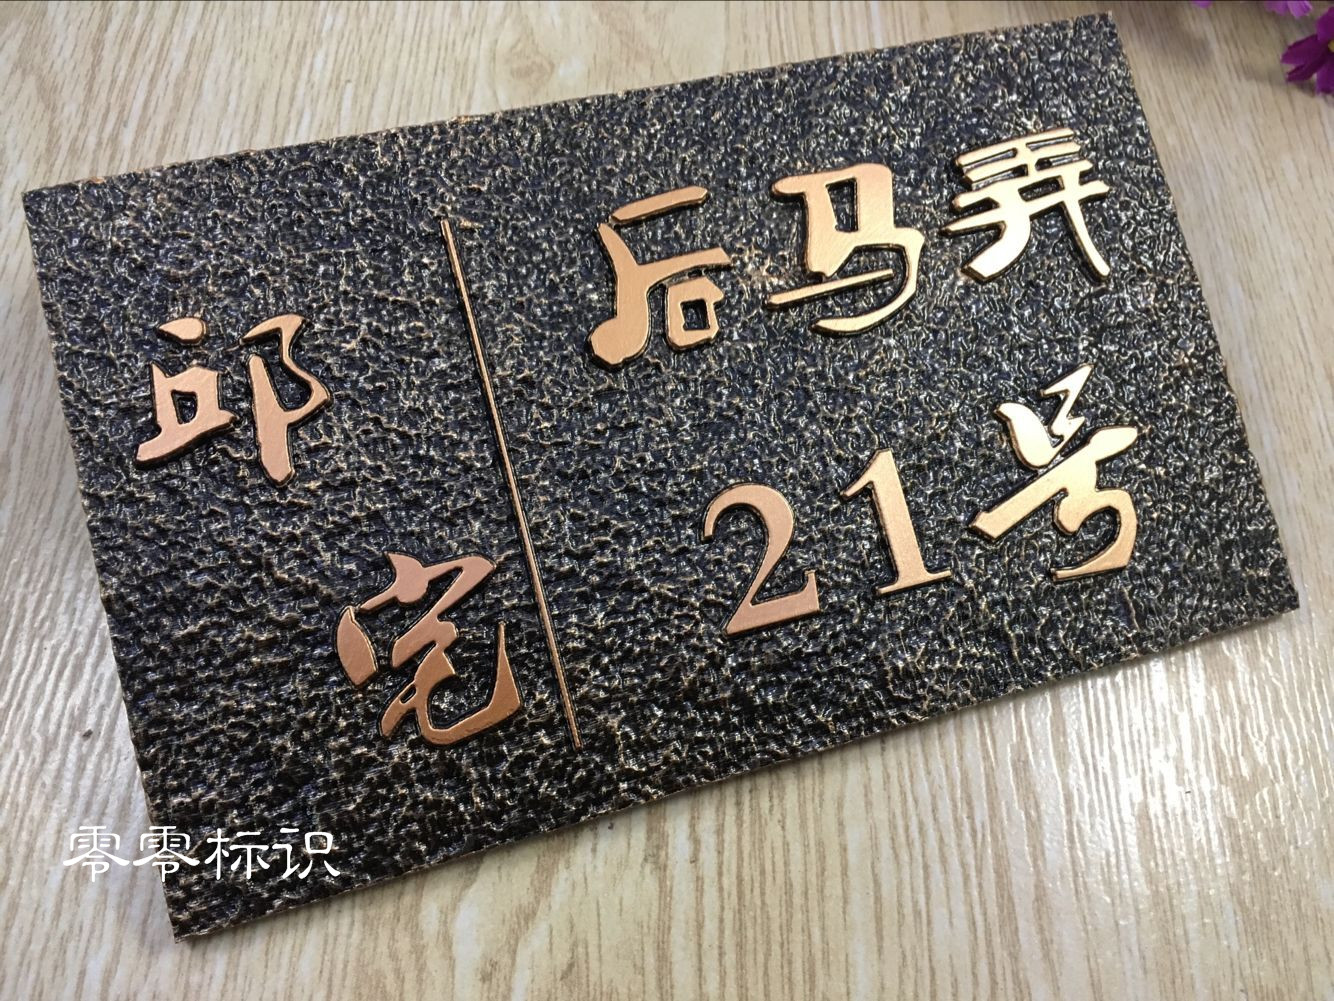 邱宅
后马弄
21号
零零标识